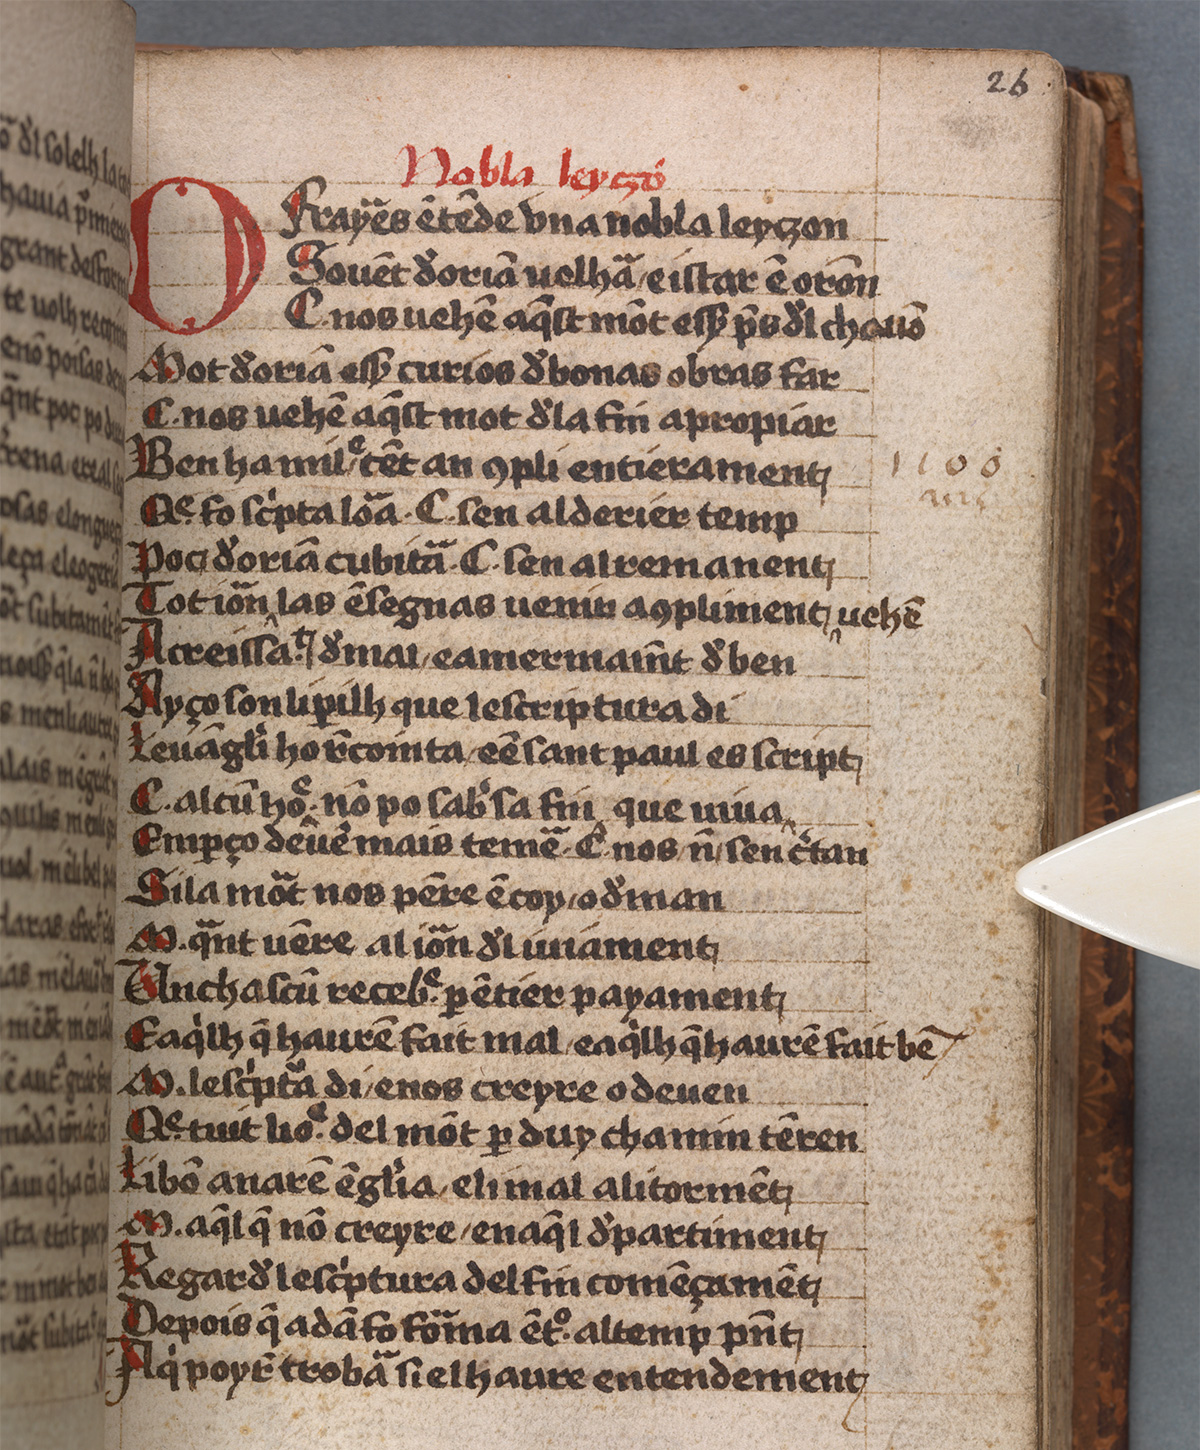 26
Nobla leyczõ
O Frayres ẽtẽde vna nobla leyczon
Souẽt deoriã uelhar e istar ẽ oron
C. nos uehẽ aq̃st mõt esser p̃s del chauõ
Mot deoriã esser curios de bonas obras far
C. nos uehẽ aq̃st mot de la fin apropiar
Ben ha mil e cẽt an ꝯpli entierament
Que fo scripta lora. C. sen al derier temp
Poc deoriã cubitar. C. sen al remanent
Tot iorn las ẽsegnas uenir a ꝯpliment
uehẽ
Acreissament de mal e amermament de ben
Ayço son li perilh que lescriptura di
Leuãgeli ho recointa e sant paul es script
C. alcũ home. nõ po saber sa fin que uiua
Emperço deuẽ mais temer C. nos nõ sen certan
Si la mort nos pẽre ẽcoy o deman
M. quant uẽre al iorn del iuiament
Vnchascũ recebre. p ẽtier payament
E aquilh q̃ haurẽ fait mal e aquilh q̃ haurẽ fait bẽ
M. lescriptura di e nos creyre o deuen
Que tuit home. del mõt per duy chamin tẽren
Li bõ anarẽ ẽ gloria e li mal a li tormẽt
M. aq̃l q̃ nõ creyre en aq̃l departiment
Regarde lescriptura del fin comẽçamẽt
Depois q̃ adã fo forma ẽtro. al temp p̃nt
Aqui poyre trobar si el haure entendement
1100